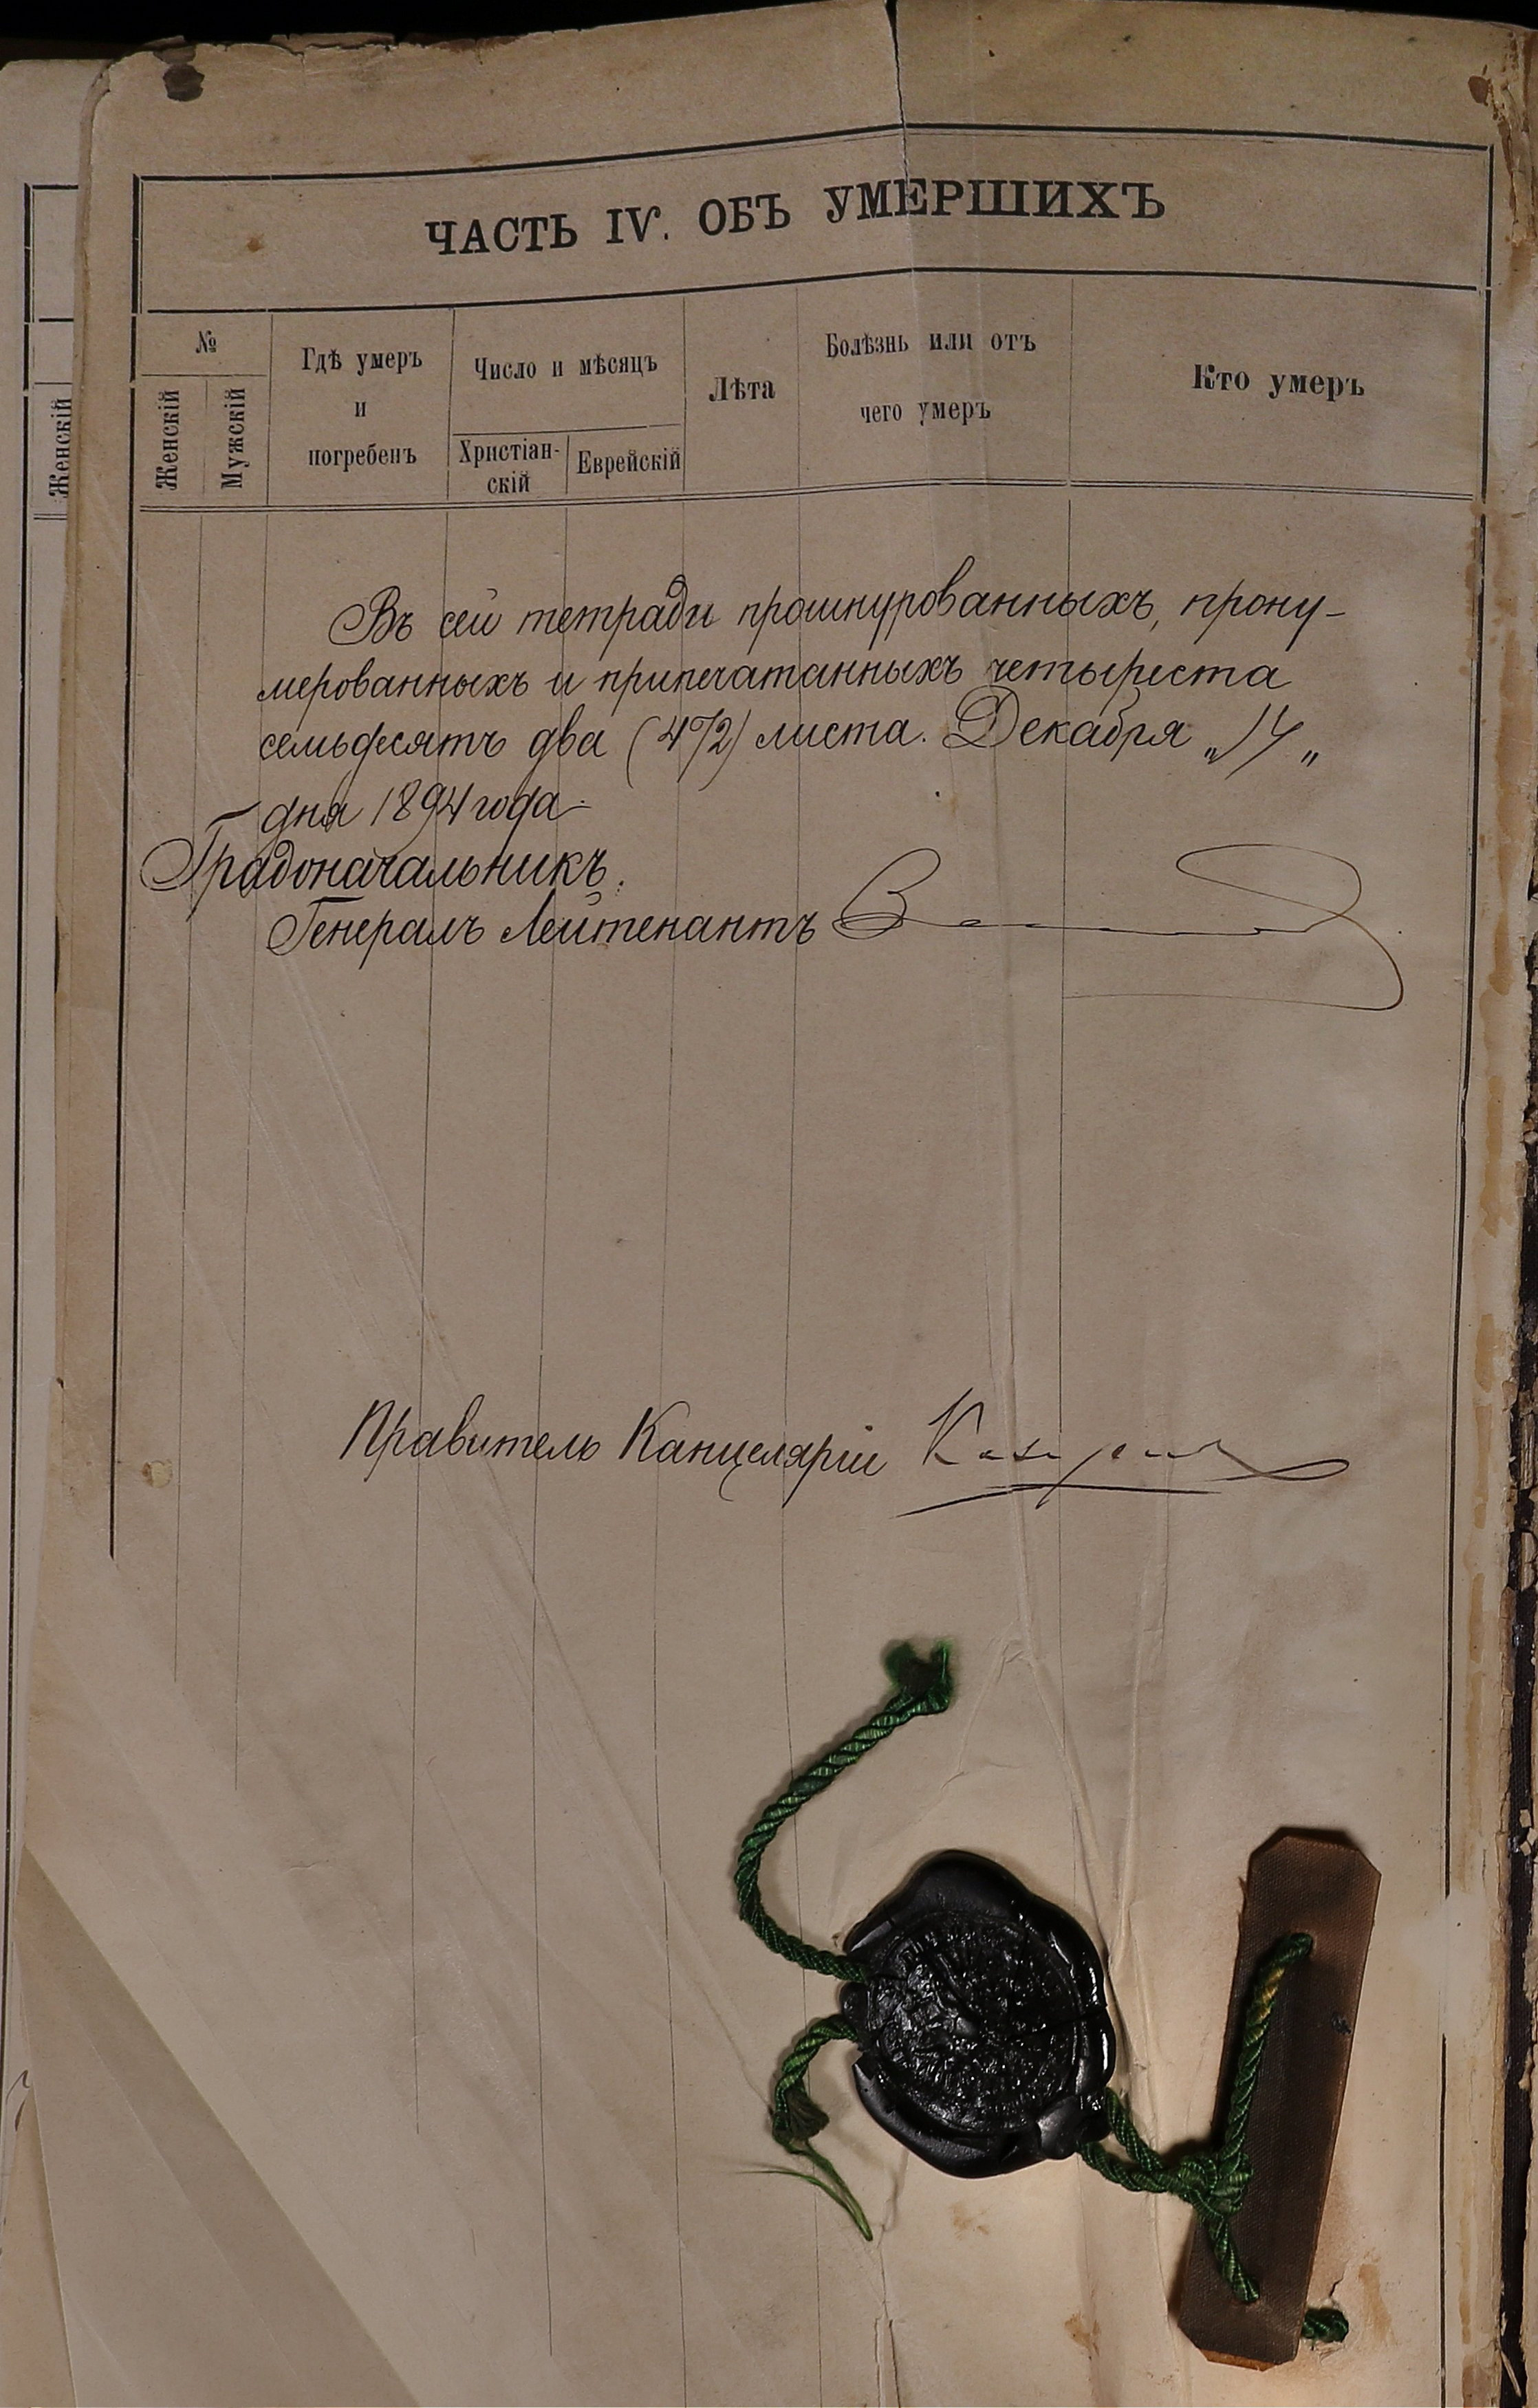 ЧАСТЬ IV. ОБЪ УМЕРШИХЪ
№
Женскій
Мужскій
Гдѣ умеръ
и
погребенъ
Число и мѣсяцъ
Христіан-
скій
Еврейскій
Лѣта
Болѣзнь или отъ
чего умеръ
Кто умеръ
Женскій
Въ сей тетради прошнурованныхъ, прону-
мерованныхъ и припечатанныхъ четыреста
семьдесятъ два (472) листа. Декабря
дня 1894 года.
Градоначальникъ,
Генералъ Лейтенантъ
Правитель Канцеляріи